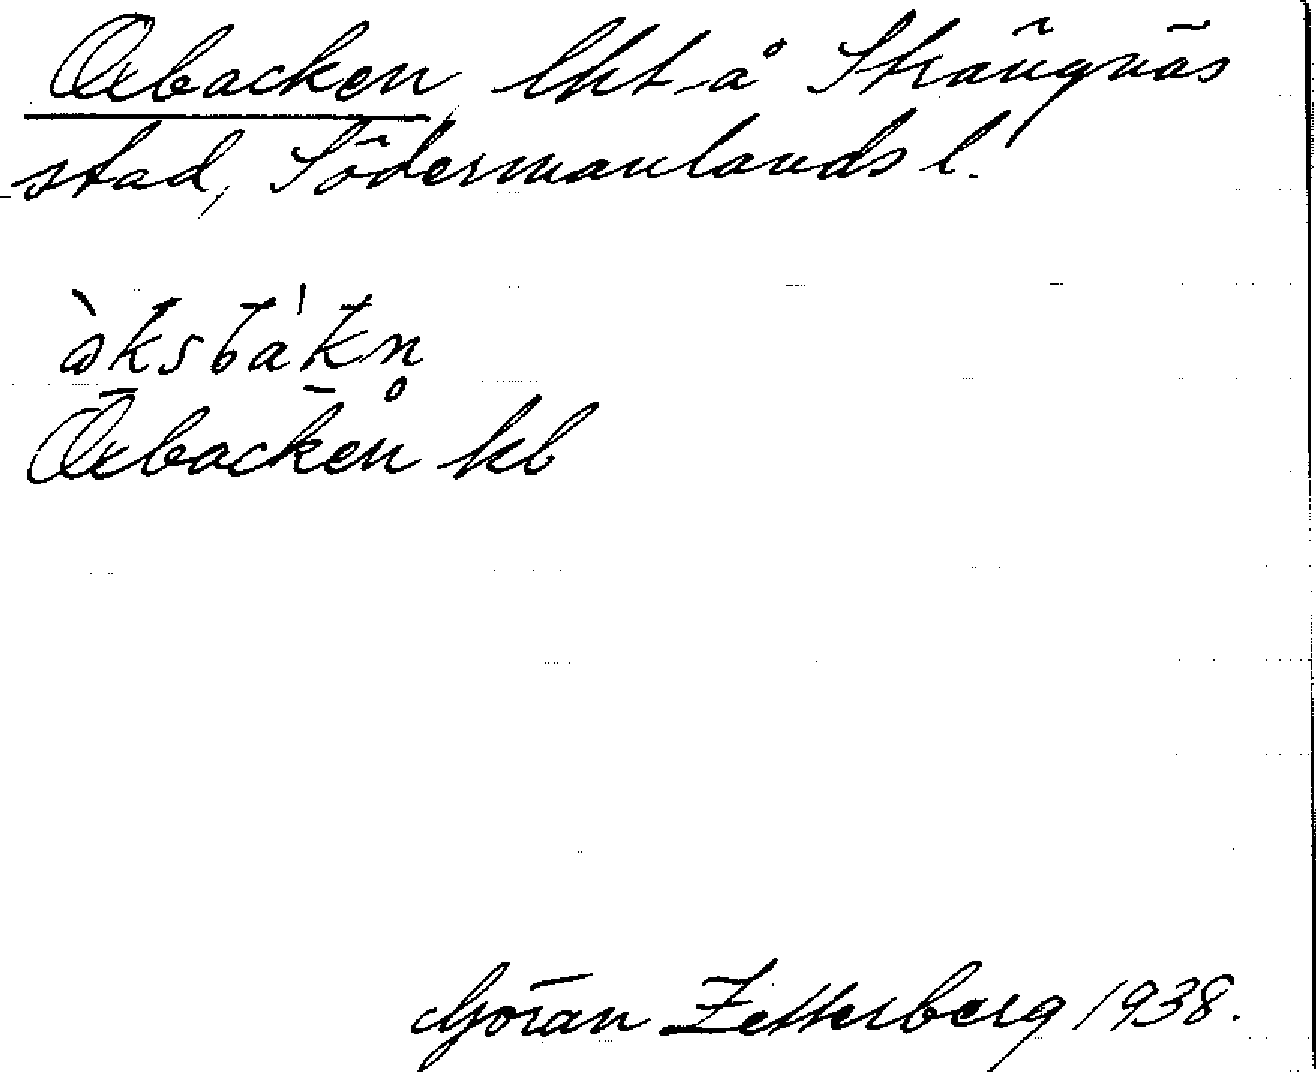 Oxbacken lht å Strängnäs
stad, Södermanlands l.
Oxbacken kb
Göran Zetterberg 1938.